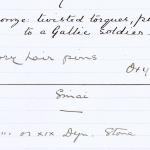 twisted torques,
to a Gallic Soldier.
hair pins
Sinai
or XIX Dyn. Stone